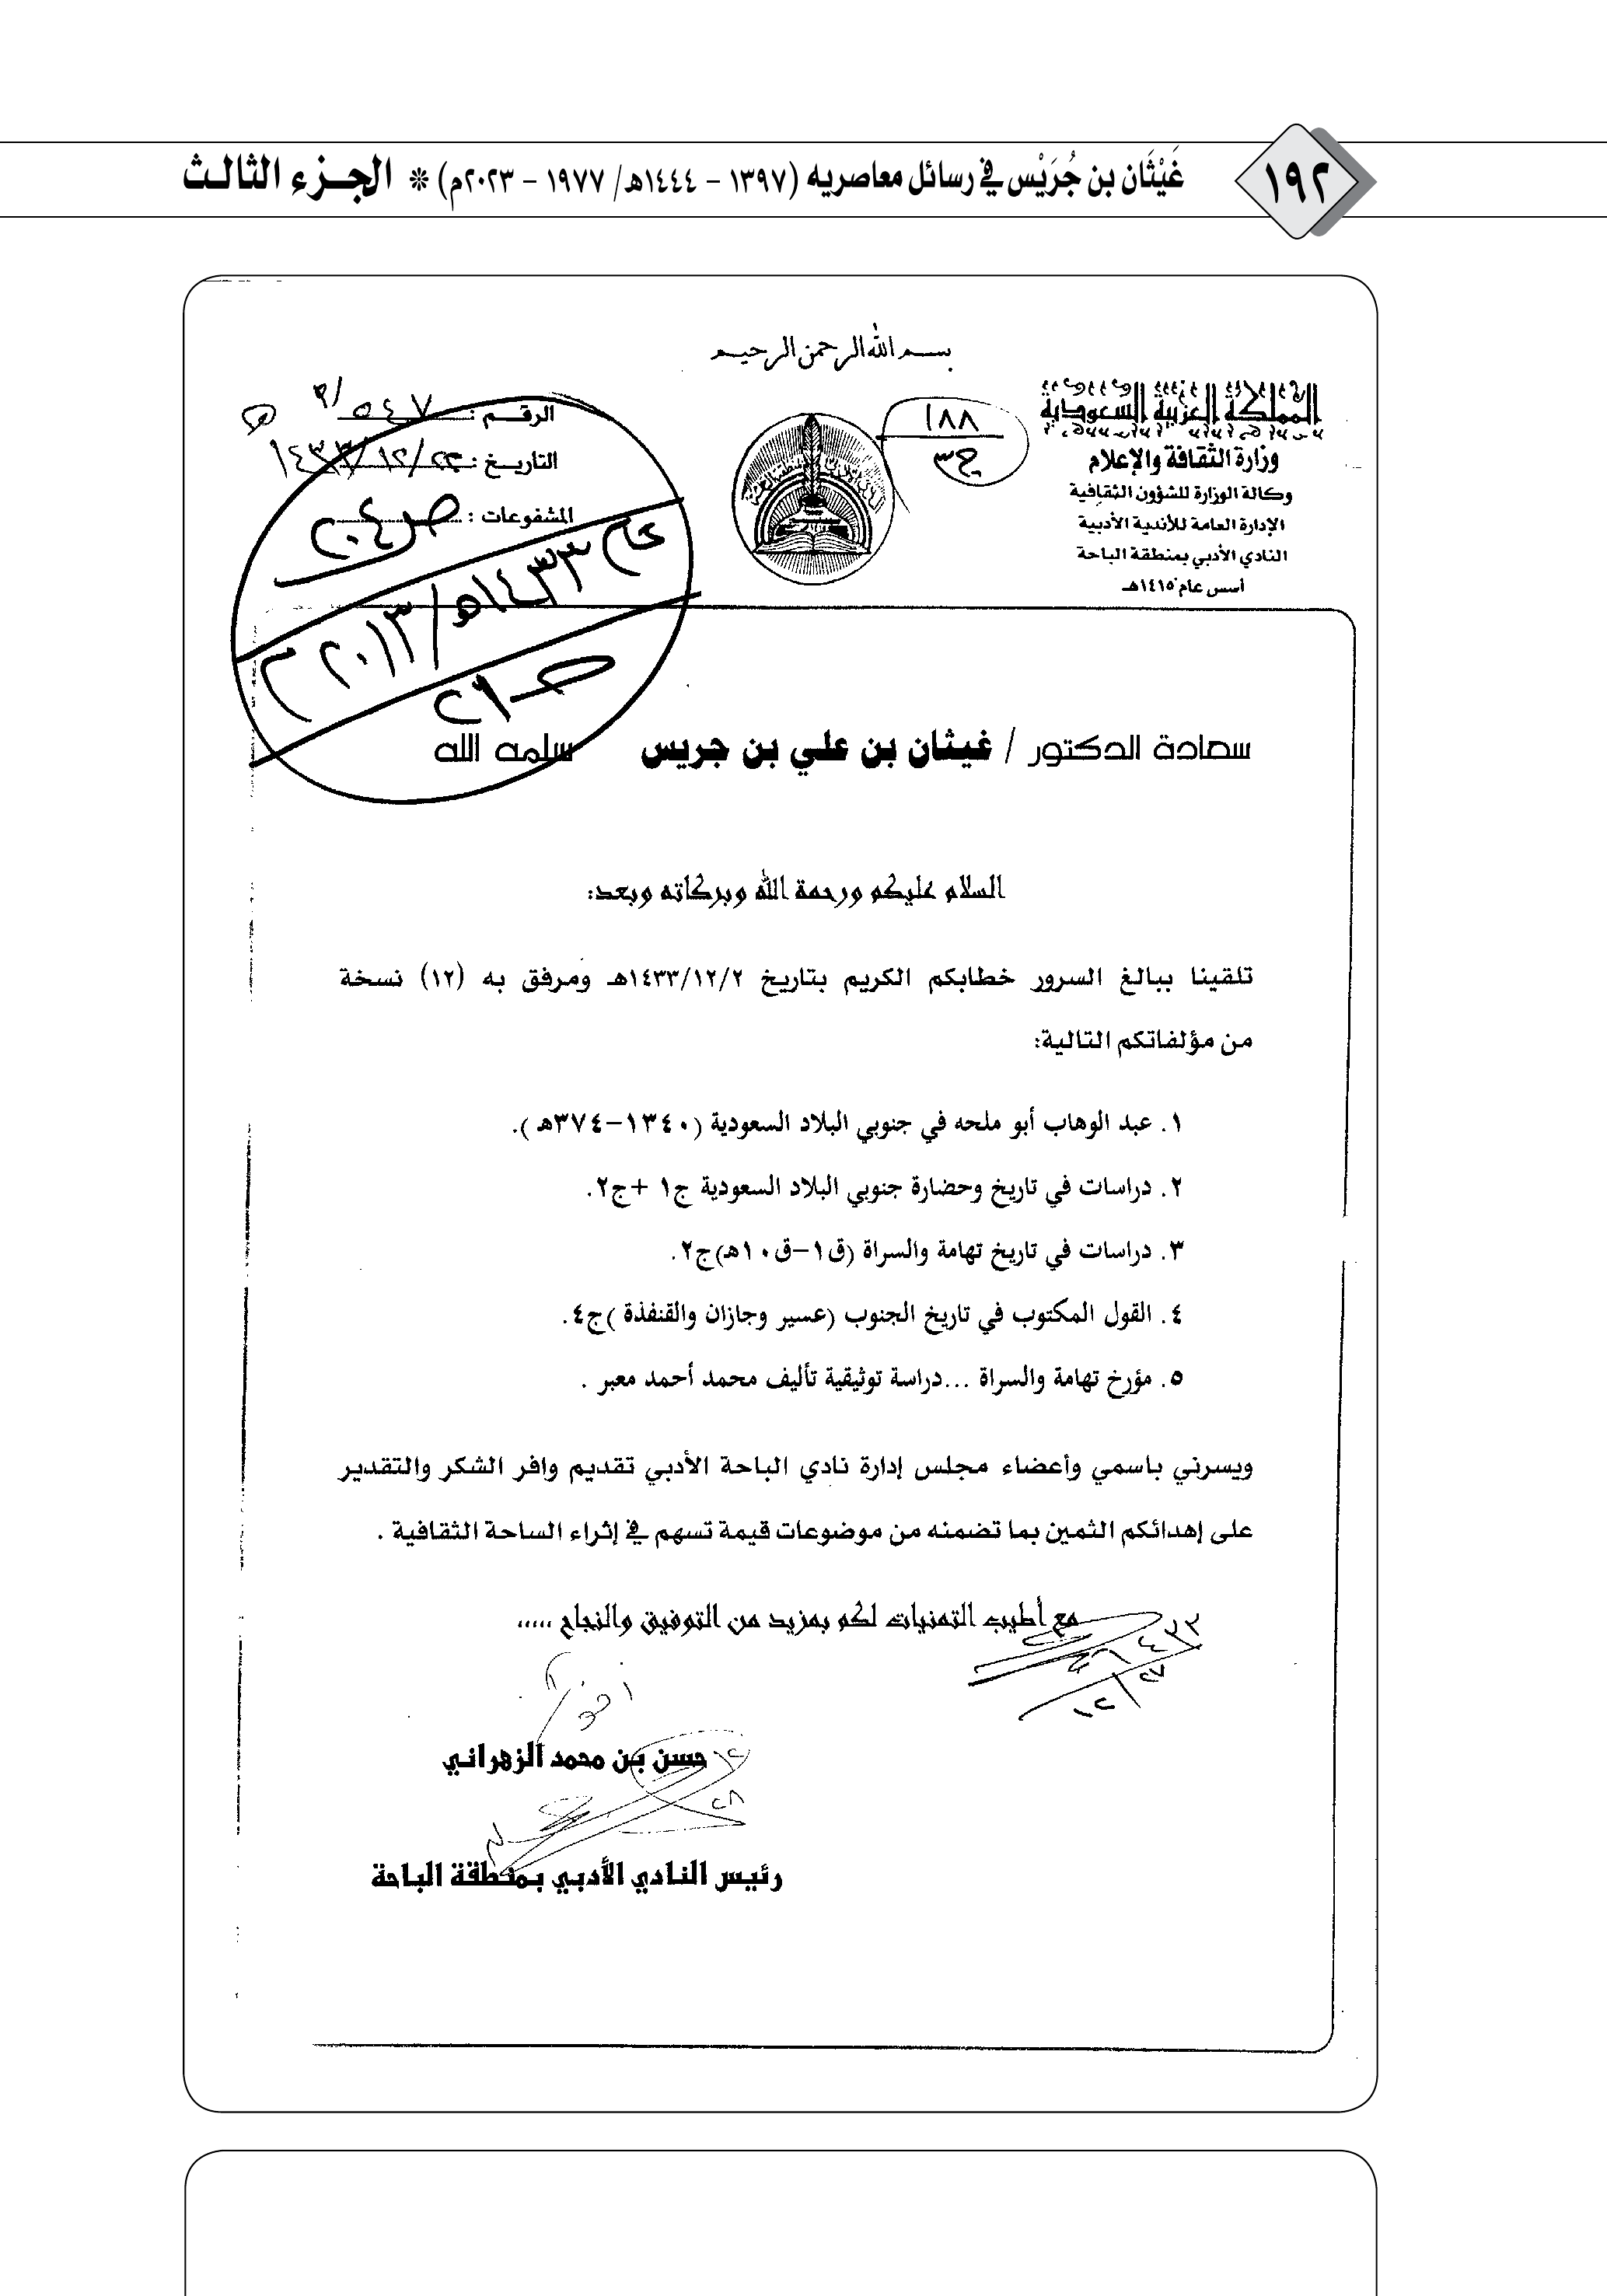 ١٩٢
غَيْثَان بن جُرَيْس في رسائل معاصريه (١٣٩٧ - ١٤٤٤هـ/ ١٩٧٧ - ٢٠٢٣م) * الجزء الثالث
بسم الله الرحمن الرحيم
المملكة العربية السعودية
وزارة الثقافة والإعلام
وكالة الوزارة للشؤون الثقافية
الإدارة العامة للأندية الأدبية
النادي الأدبي بمنطقة الباحة
أسس عام ١٤١٥هـ
١٨٨
ج٣
الرقم : ٥٤٧
التاريخ : ١٤٣٣/١٢/٢٣
المشفوعات :
ص٢٠٤
عام ١٤٣٣هـ/٢٠١٣م
سعادة الدكتور / غيثان بن علي بن جريس سلمه الله
السلام عليكم ورحمة الله وبركاته وبعد:
تلقينا ببالغ السرور خطابكم الكريم بتاريخ ١٤٣٣/١٢/٢هـ ومرفق به (١٢) نسخة
من مؤلفاتكم التالية:
١. عبد الوهاب أبو ملحه في جنوبي البلاد السعودية (١٣٤٠-٣٧٤هـ ).
٢. دراسات في تاريخ وحضارة جنوبي البلاد السعودية ج١ +ج٢.
٣. دراسات في تاريخ تهامة والسراة (ق١-ق١٠هـ)ج٢.
٤. القول المكتوب في تاريخ الجنوب (عسير وجازان والقنفذة )ج٤.
٥. مؤرخ تهامة والسراة ...دراسة توثيقية تأليف محمد أحمد معبر .
ويسرني باسمي وأعضاء مجلس إدارة نادي الباحة الأدبي تقديم وافر الشكر والتقدير
على إهدائكم الثمين بما تضمنه من موضوعات قيمة تسهم في إثراء الساحة الثقافية .
مع أطيب التمنيات لكم بمزيد من التوفيق والنجاح .....
حسن بن محمد الزهراني
رئيس النادي الأدبي بمنطقة الباحة